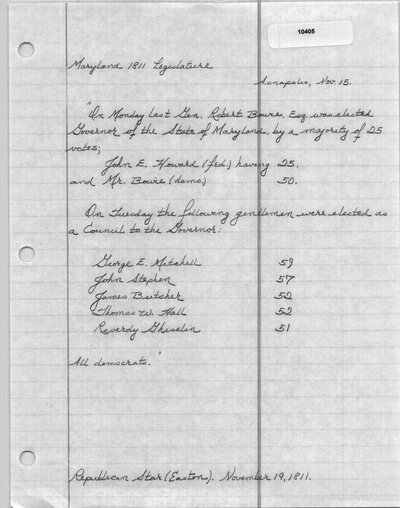 10405
Maryland 1811 Legislature
Annapolis, Nov. 15.
"On Monday last Gen. Robert Bowie, Esq. was elected
Governor of the State of Maryland, by a majority of 25
votes;
John E. Howard (fed.) having 25.
and Mr. Bowie (demo) 50.
On Tuesday the following gentlemen were elected as
a Council to the Governor:
George E. Mitchell 59
John Stephen 57
James Butcher 52
Thomas W. Hall 52
Reverdy Ghiselin 51
All democrats."
Republican Star (Easton). November 19, 1811.